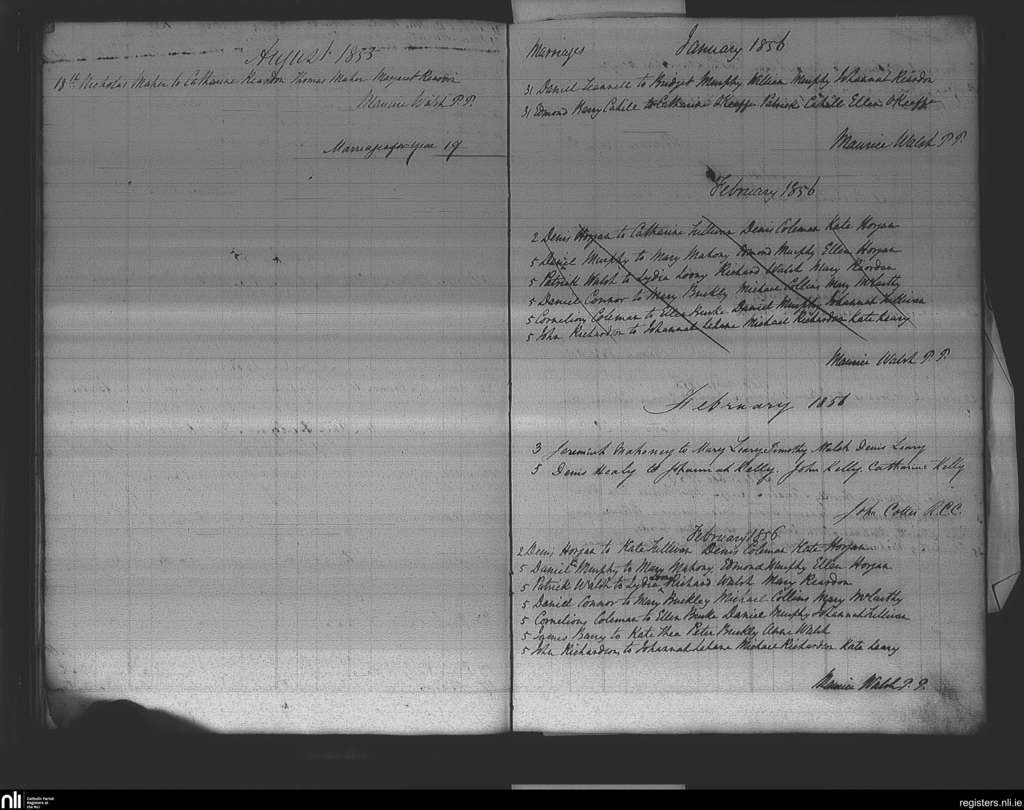 August 1855
18th Nicholas Maher to Catharine Reardon Thomas Maher Margaret Reardon
Maurice Walsh P.P.
Marriages for year 19
Marriages January 1856
31 Daniel to Bridget Murphy William Murphy Johannah Reardon
31 Edmond Henry Cahill to Catharine O'Keeffe Patrick Cahill Ellen O'Keeffe
Maurice Walsh P.P.
February 1856
2 Denis Horgan to Catharine Sullivan Denis Coleman Kate Horgan
5 Daniel Murphy to Mary Mahony Edmond Murphy Ellen Horgan
5 Patrick Walsh to Lydia Loony Richard Walsh Mary Reardon
5 Daniel Connor to Mary Buckly Michael Collins Mary McCarthy
5 Cornelious Coleman to Ellen Burke Daniel Murphy Johannah Sullivan
5 John Richardson to Johannah Lehane Michael Richardson Kate Leary
Maurice Walsh P.P.
February 1856
3 Jeremiah Mahoney to Mary Leary Timothy Walsh Denis Leary
5 Denis Healy to Johannah Kelly. John Kelly. Catharine Kelly
John Cotter R.C.C.
February 1856
2 Denis Horgan to Kate Sullivan Denis Coleman Kate Horgan
5 Daniel Murphy to Mary Mahony Edmond Murphy Ellen Horgan
5 Patrick Walsh to Lydia Loony Richard Walsh Mary Reardon
5 Daniel Connor to Mary Buckley Michael Collins Mary McCarthy
5 Cornelious Coleman to Ellen Burke Daniel Murphy Johannah Sullivan
5 James Barry to Kate Shea Peter Buckly Anne Walsh
5 John Richardson to Johannah Lehane Michael Richardson Kate Leary
Maurice Walsh P.P.
nli Catholic Parish Registers at the NLI
registers.nli.ie